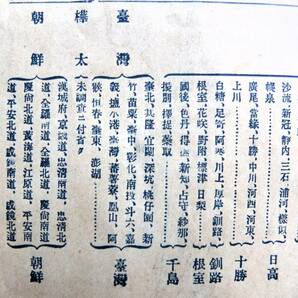 沙流 新冠、靜內 三石 浦河 樣似
幌泉　日高
廣尾、當緣、十勝、中川 河西、河東、
上川　十勝
白糠、足寄、阿寒、川上、厚岸、釧路　釧路
根室、花咲、野付、標津、目梨　根室
國後、色丹、得撫、新知、占守、紗那
振別、擇捉、蘂取　千島
臺灣
臺北、基隆、宜蘭、深坑、桃仔園、新
竹、苗栗、臺中、彰化、南投、斗六、嘉
義、鹽水港、臺灣、蕃薯寮、鳳山、阿
猴、恒春、臺東、澎湖　臺灣
樺太
未調査ニ付省ク
朝鮮
漢城府、京畿道、忠淸南道、忠淸北
道、全羅南道、全羅北道、慶尙南道
慶尙北道、黃海道、江原道、平安南
道、平安北道、咸鏡南道、咸鏡北道　朝鮮